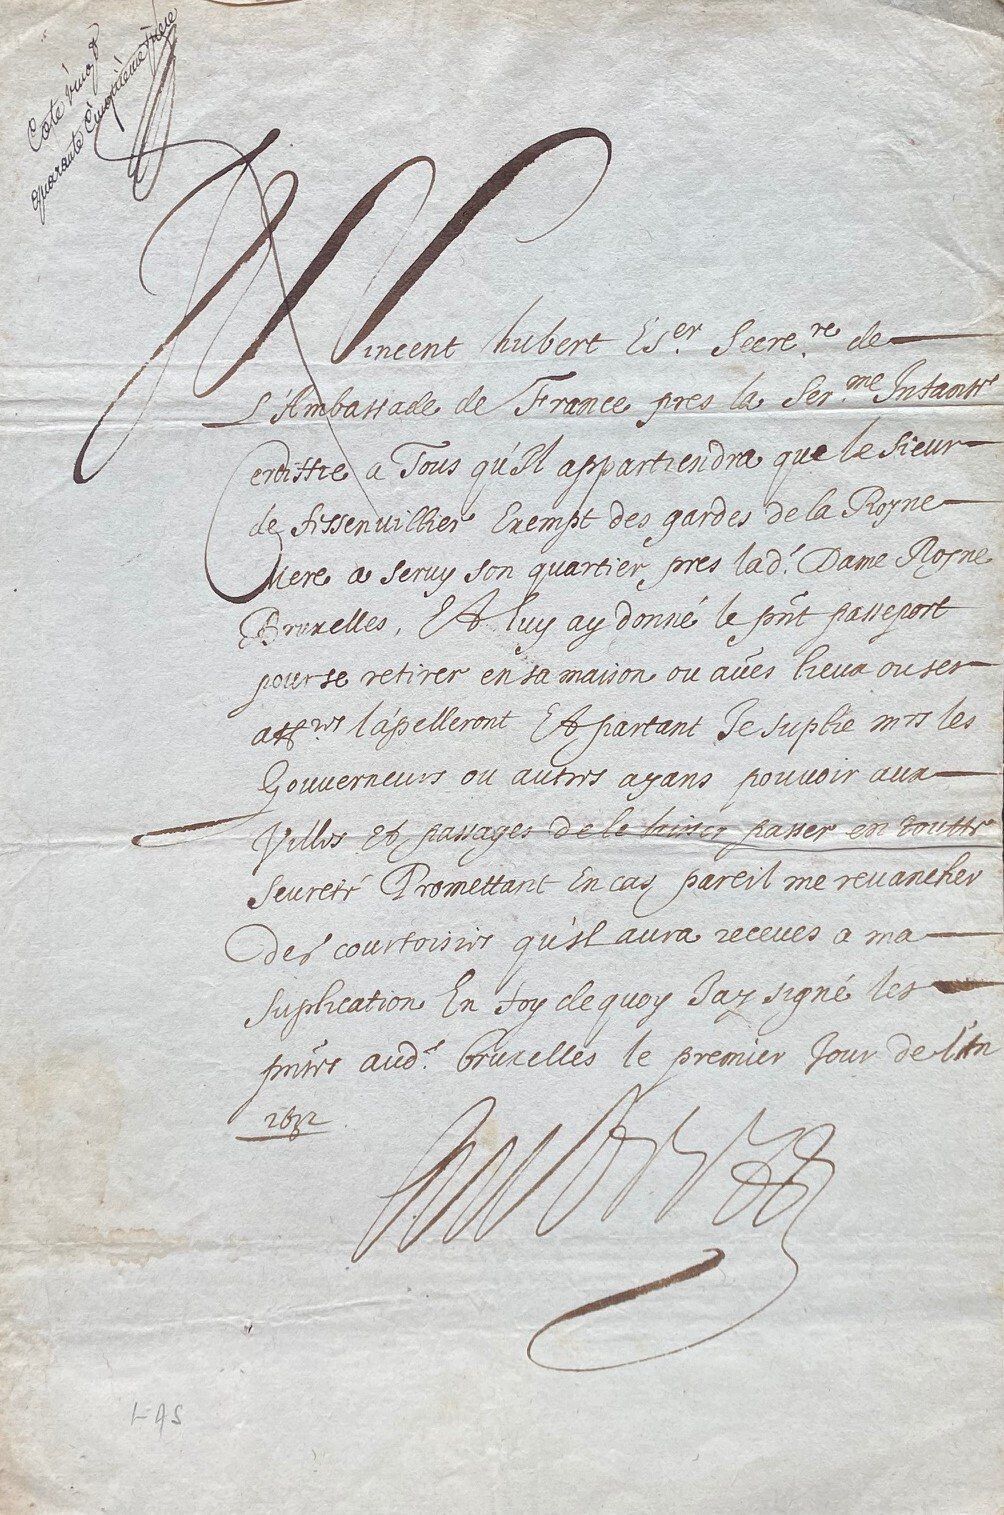 Cote vingt
quarante Cinquième pièce
Vincent hubert Es.er Secre.re de
L'Ambassade de France pres la Ser.me Infante
Certiffie a Tous qu'Il appartiendra que le sieur
de fissenvillier Exempt des gardes de la Royne
Mere a servy son quartier, pres lad. Dame Royne
Bruxelles, Et luy ay donné le pnt passeport
pour se retirer en sa maison ou aues lieux ou ses
aff.res l'apelleront Et partant Je suplie mrs les
Gouverneurs ou autres ayans pouvoir aux
Villes et passages de le laisser passer en toutte
seureté Promettant En cas pareil me revancher
Des courtoisies qu'Il aura receues a ma
suplication En foy de quoy J'ay signé les
pntes aud. bruxelles le premier Jour de l'An
1632
hubert
LAS